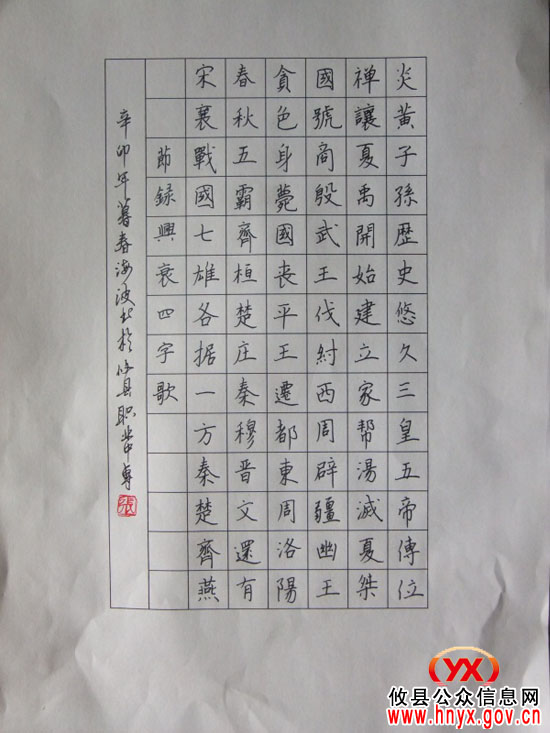 炎黃子孫歷史悠久三皇五帝傳位
禅讓夏禹開始建立家幇湯滅夏桀
國號商殷武王伐紂西周辟疆幽王
貪色身薨國丧平王遷都東周洛陽
春秋五霸齊桓楚庄秦穆晋文還有
宋襄戰國七雄各据一方秦楚齊燕
節録興衰四字歌
辛卯年暮春海波书於攸县职业中专
張
YX
攸县公众信息网
www.hnyx.gov.cn